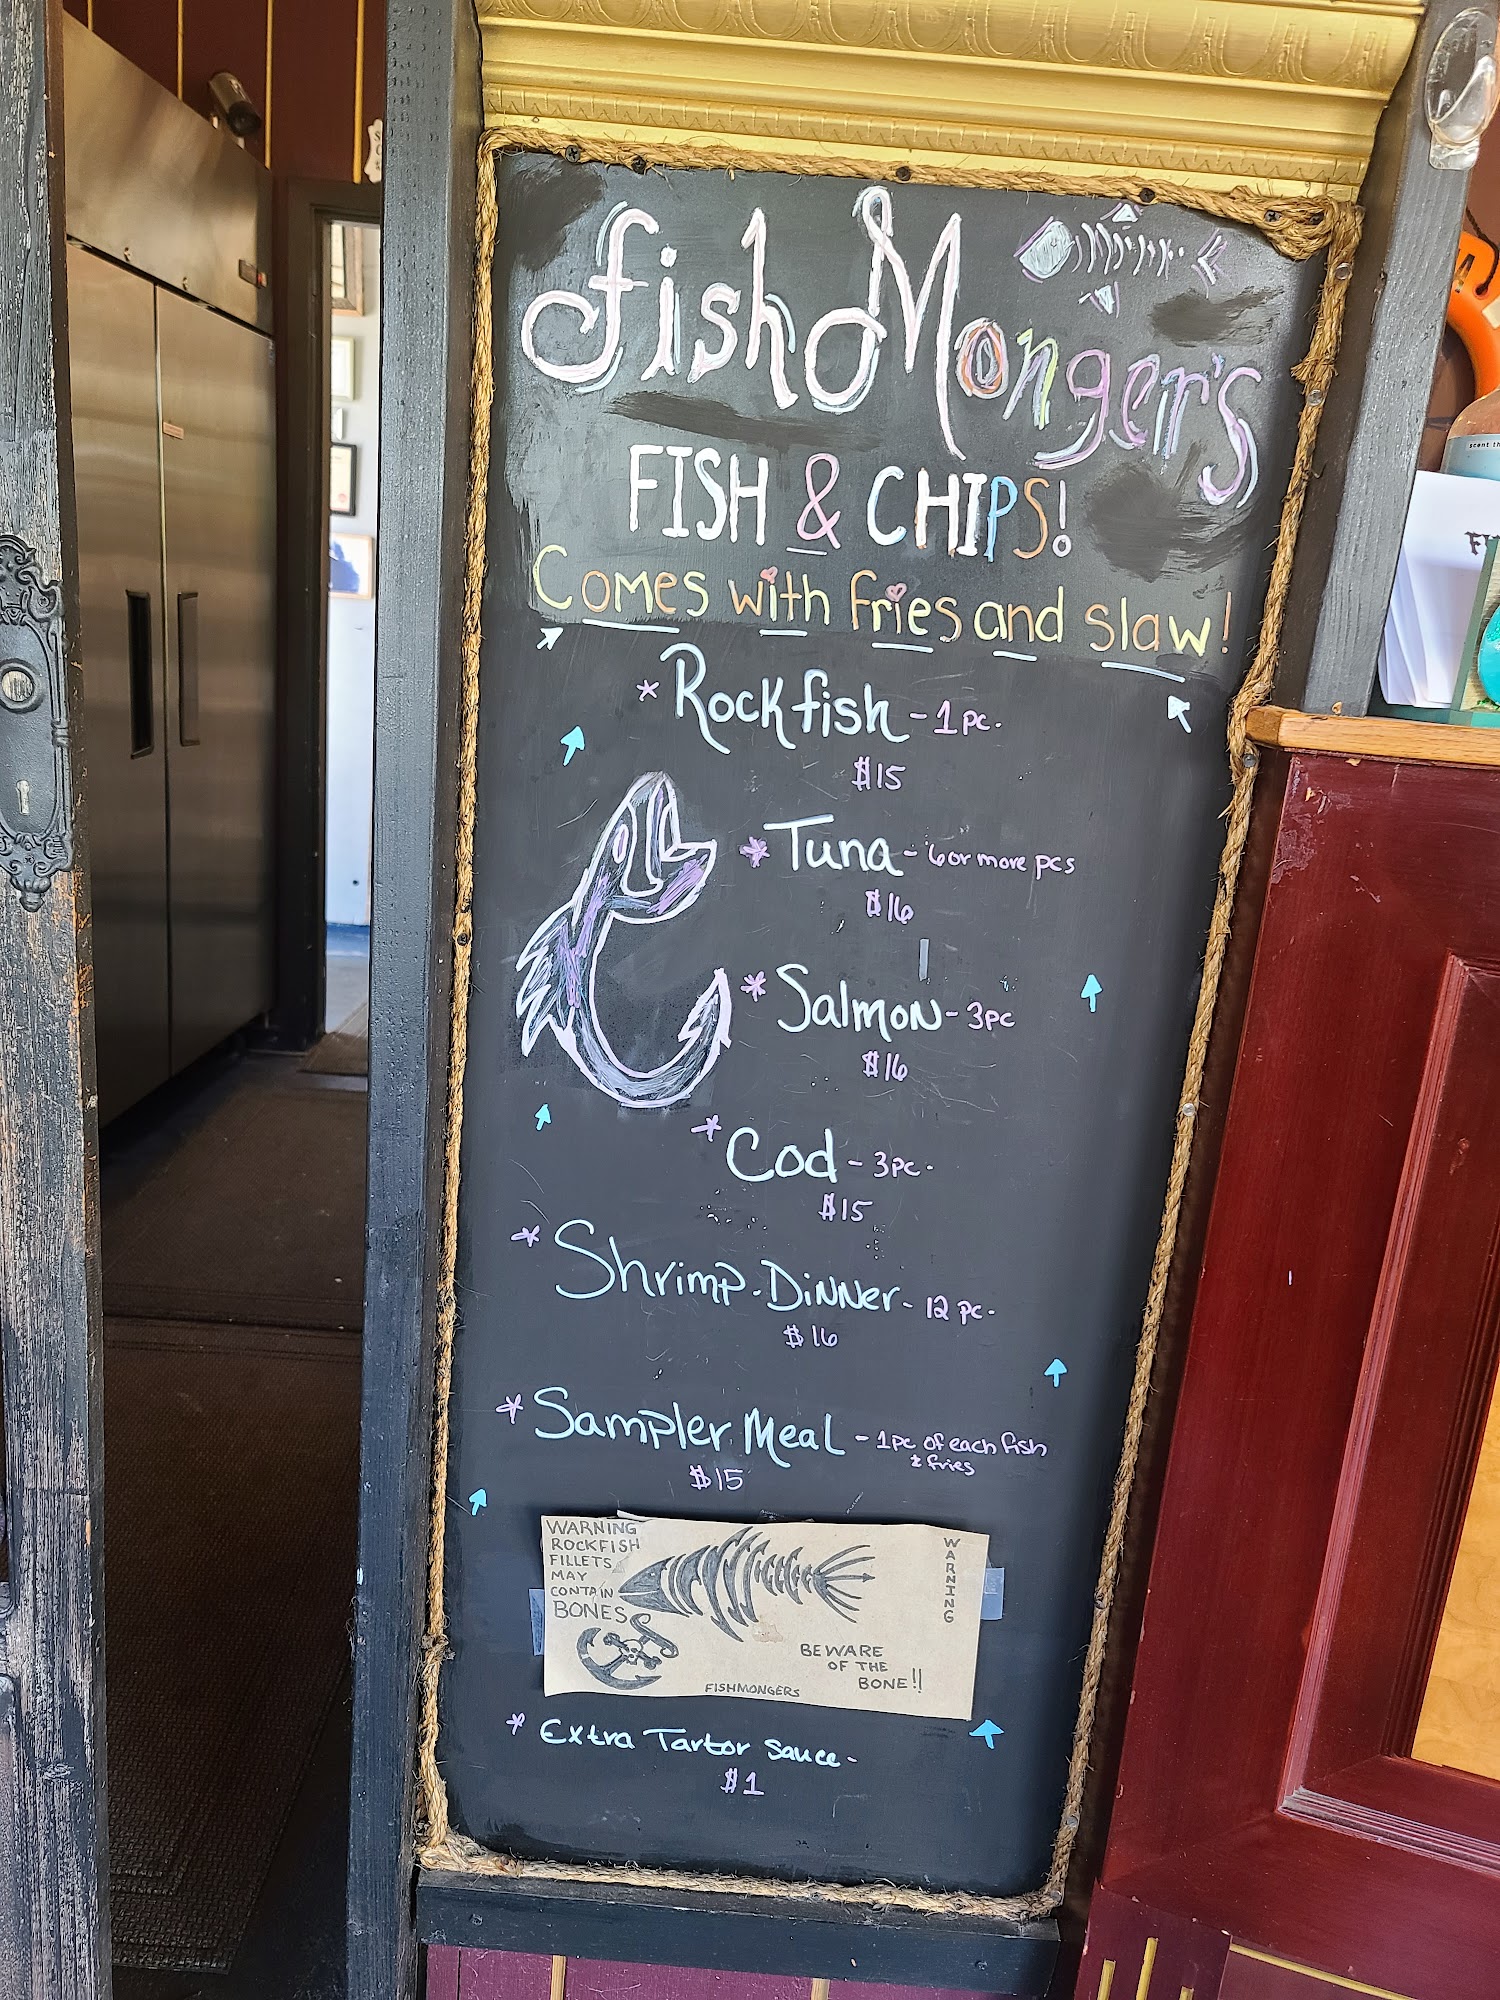 fishMonger's
FISH & CHIPS!
Comes with fries and slaw!
* Rockfish - 1 pc.
$15
* Tuna - 6 or more pcs
$16
* Salmon - 3pc
$16
* Cod - 3pc.
$15
* Shrimp. Dinner - 12 pc.
$16
* Sampler Meal - 1pc of each fish
& fries
$15
WARNING
ROCKFISH
FILLETS
MAY
CONTAIN
BONES
WARNING
BEWARE
OF THE
BONE!!
FISHMONGERS
* Extra Tartor Sauce -
$1